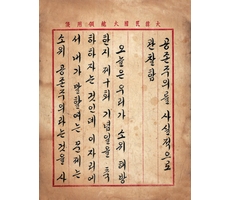 공존주의를 사실적으로
관찰함
오늘은 우리가 소위 해방
한지 제十회 기념일을 축
하하자는 것인데 이 자리에
서 내가 말할여는 문제는
소위 공존주의라는 것을 사